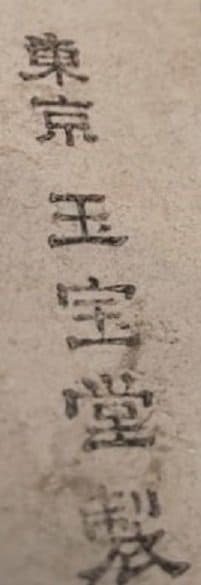 東京 玉宝堂製